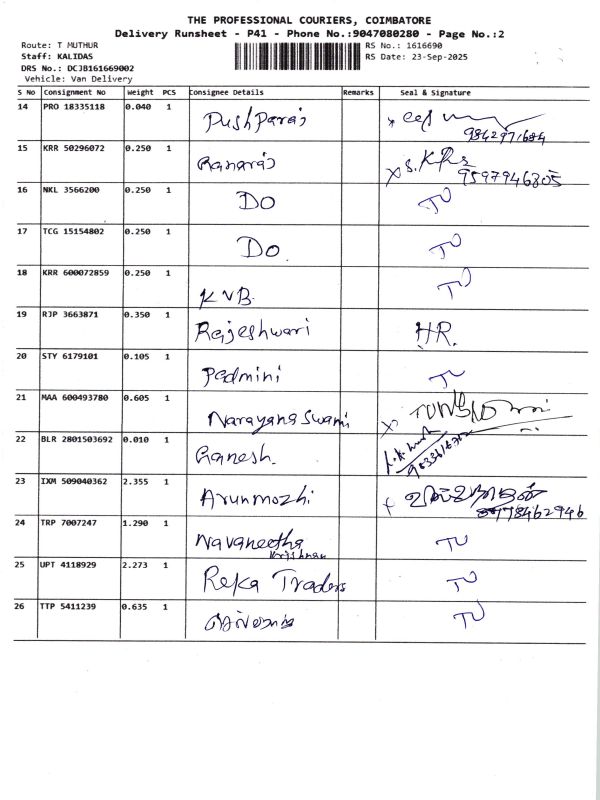 THE PROFESSIONAL COURIERS, COIMBATORE
Delivery Runsheet - P41 - Phone No.:9047080280 - Page No.:2
Route: T MUTHUR
RS No.: 1616690
Staff: KALIDAS
RS Date: 23-Sep-2025
DRS No.: DCJB161669002
Vehicle: Van Delivery
S No Consignment No Weight PCS Consignee Details Remarks Seal & Signature
14 PRO 18335118 0.040 1 Pushparaj
9842971684
15 KRR 50296072 0.250 1 Ranaraj
9597946805
16 NKL 3566200 0.250 1 DO TU
17 TCG 15154802 0.250 1 DO. TU
18 KRR 600072859 0.250 1 KVB. TU
19 RJP 3663871 0.350 1 Rajeshwari HR.
20 STY 6179101 0.105 1 Padmini TU
21 MAA 600493780 0.605 1 Narayanaswami
22 BLR 2801503692 0.010 1 Ganesh.
23 IXM 509040362 2.355 1 Arunmozhi
24 TRP 7007247 1.290 1 Navaneetha TU
Krishnan
25 UPT 4118929 2.273 1 Reka Traders TU
26 TTP 5411239 0.635 1 TU